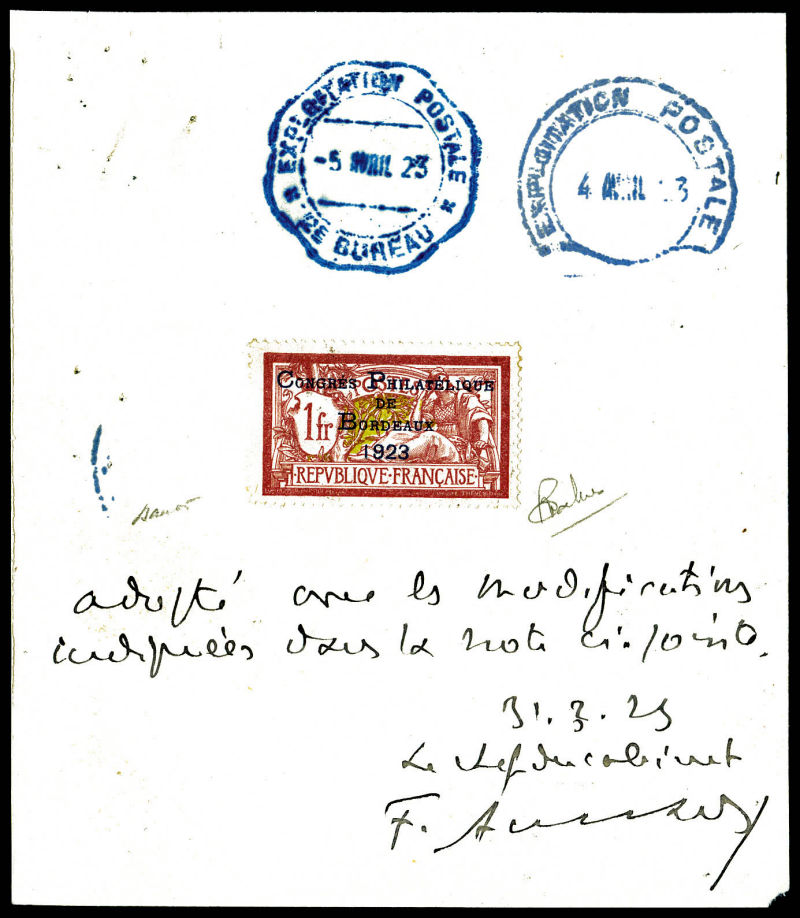 EXPLOITATION POSTALE
-5 AVRIL 23
DE BUREAU
EXPLOITATION POSTALE
4 AVRIL 23
CONGRÈS PHILATÉLIQUE
DE
BORDEAUX
1923
1 fr
REPVBLIQVE FRANÇAISE
adopté avec les modifications
indiquées dans la note ci-jointe.
31.3.23
Le chef du cabinet
F.